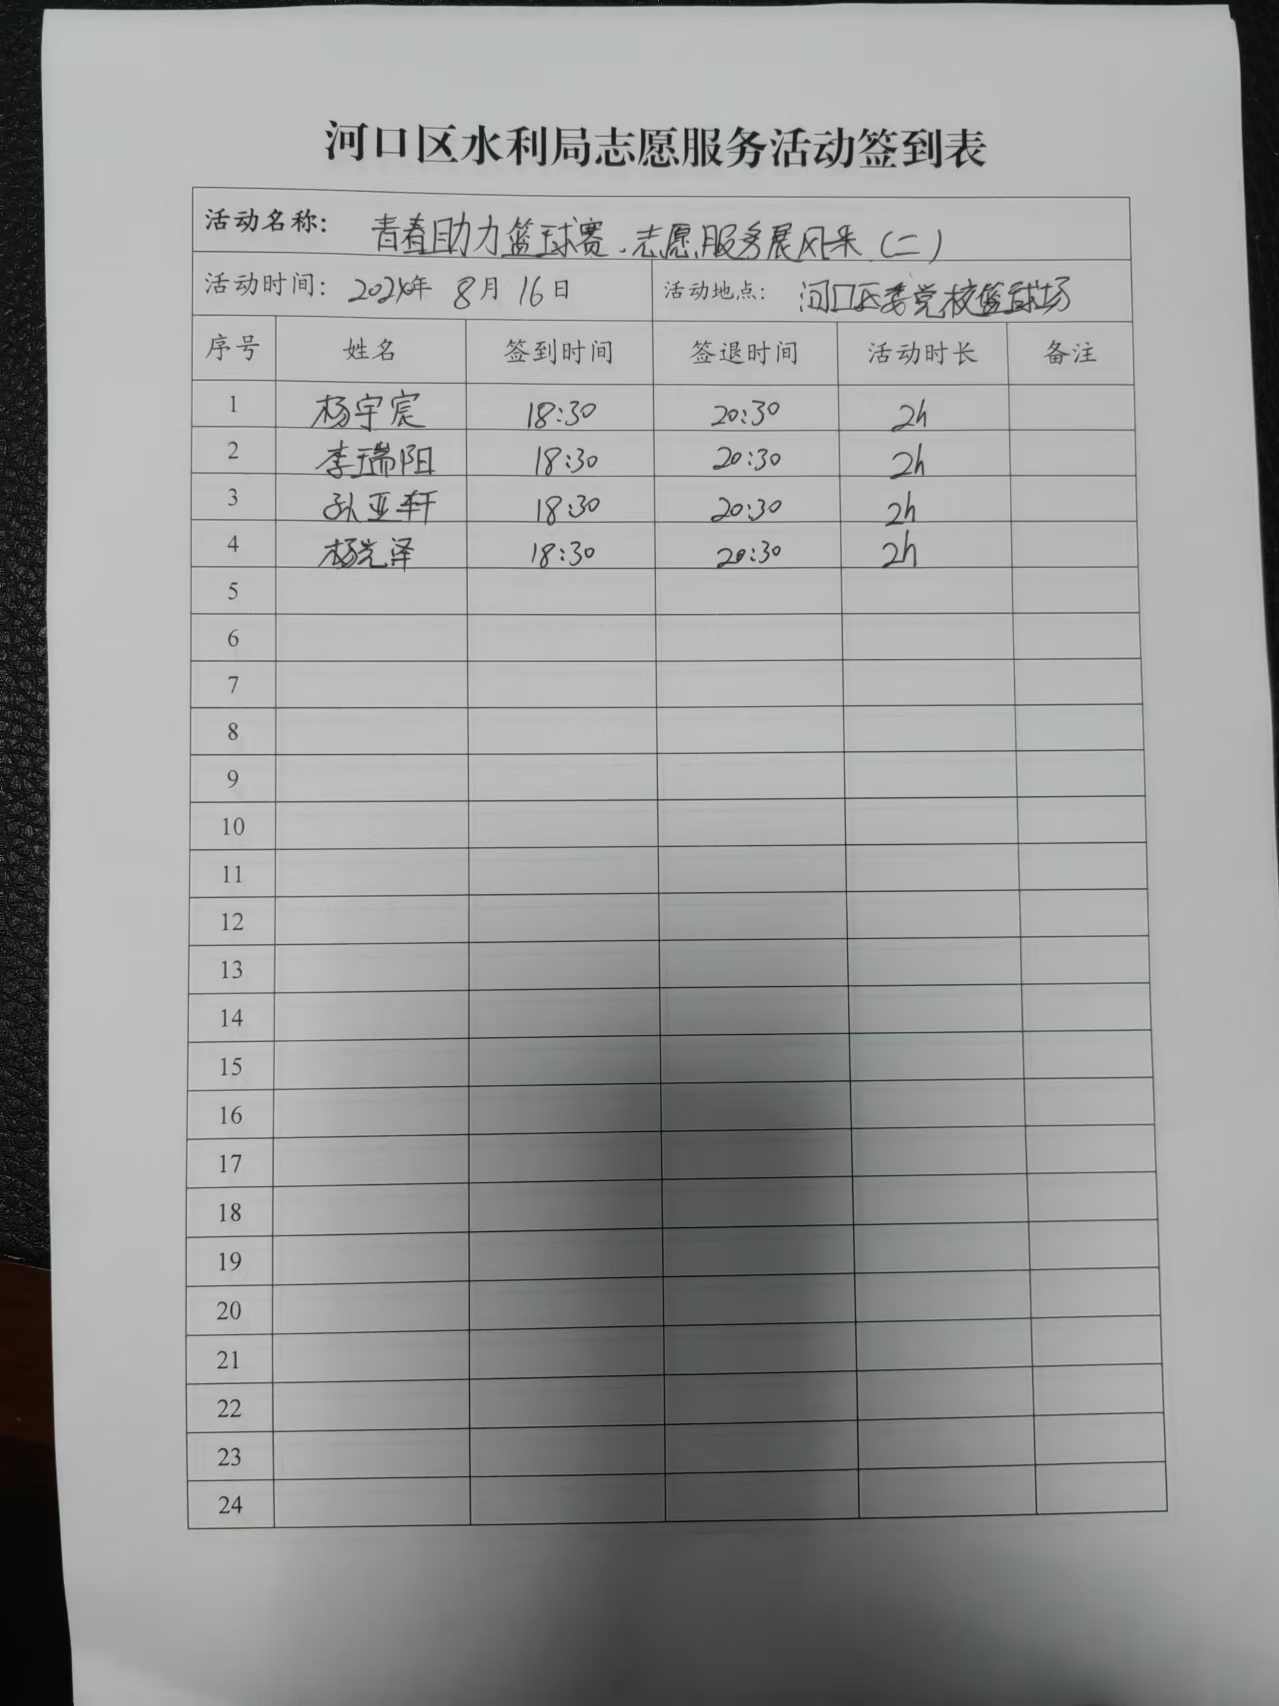 河口区水利局志愿服务活动签到表
活动名称： 青春助力篮球赛，志愿服务展风采（二）
活动时间：2024年 8月 16日 活动地点： 河口区委党校篮球场
序号 姓名 签到时间 签退时间 活动时长 备注
1 杨宇宸 18:30 20:30 2h
2 李瑞阳 18:30 20:30 2h
3 孙亚轩 18:30 20:30 2h
4 杨光泽 18:30 20:30 2h
5
6
7
8
9
10
11
12
13
14
15
16
17
18
19
20
21
22
23
24